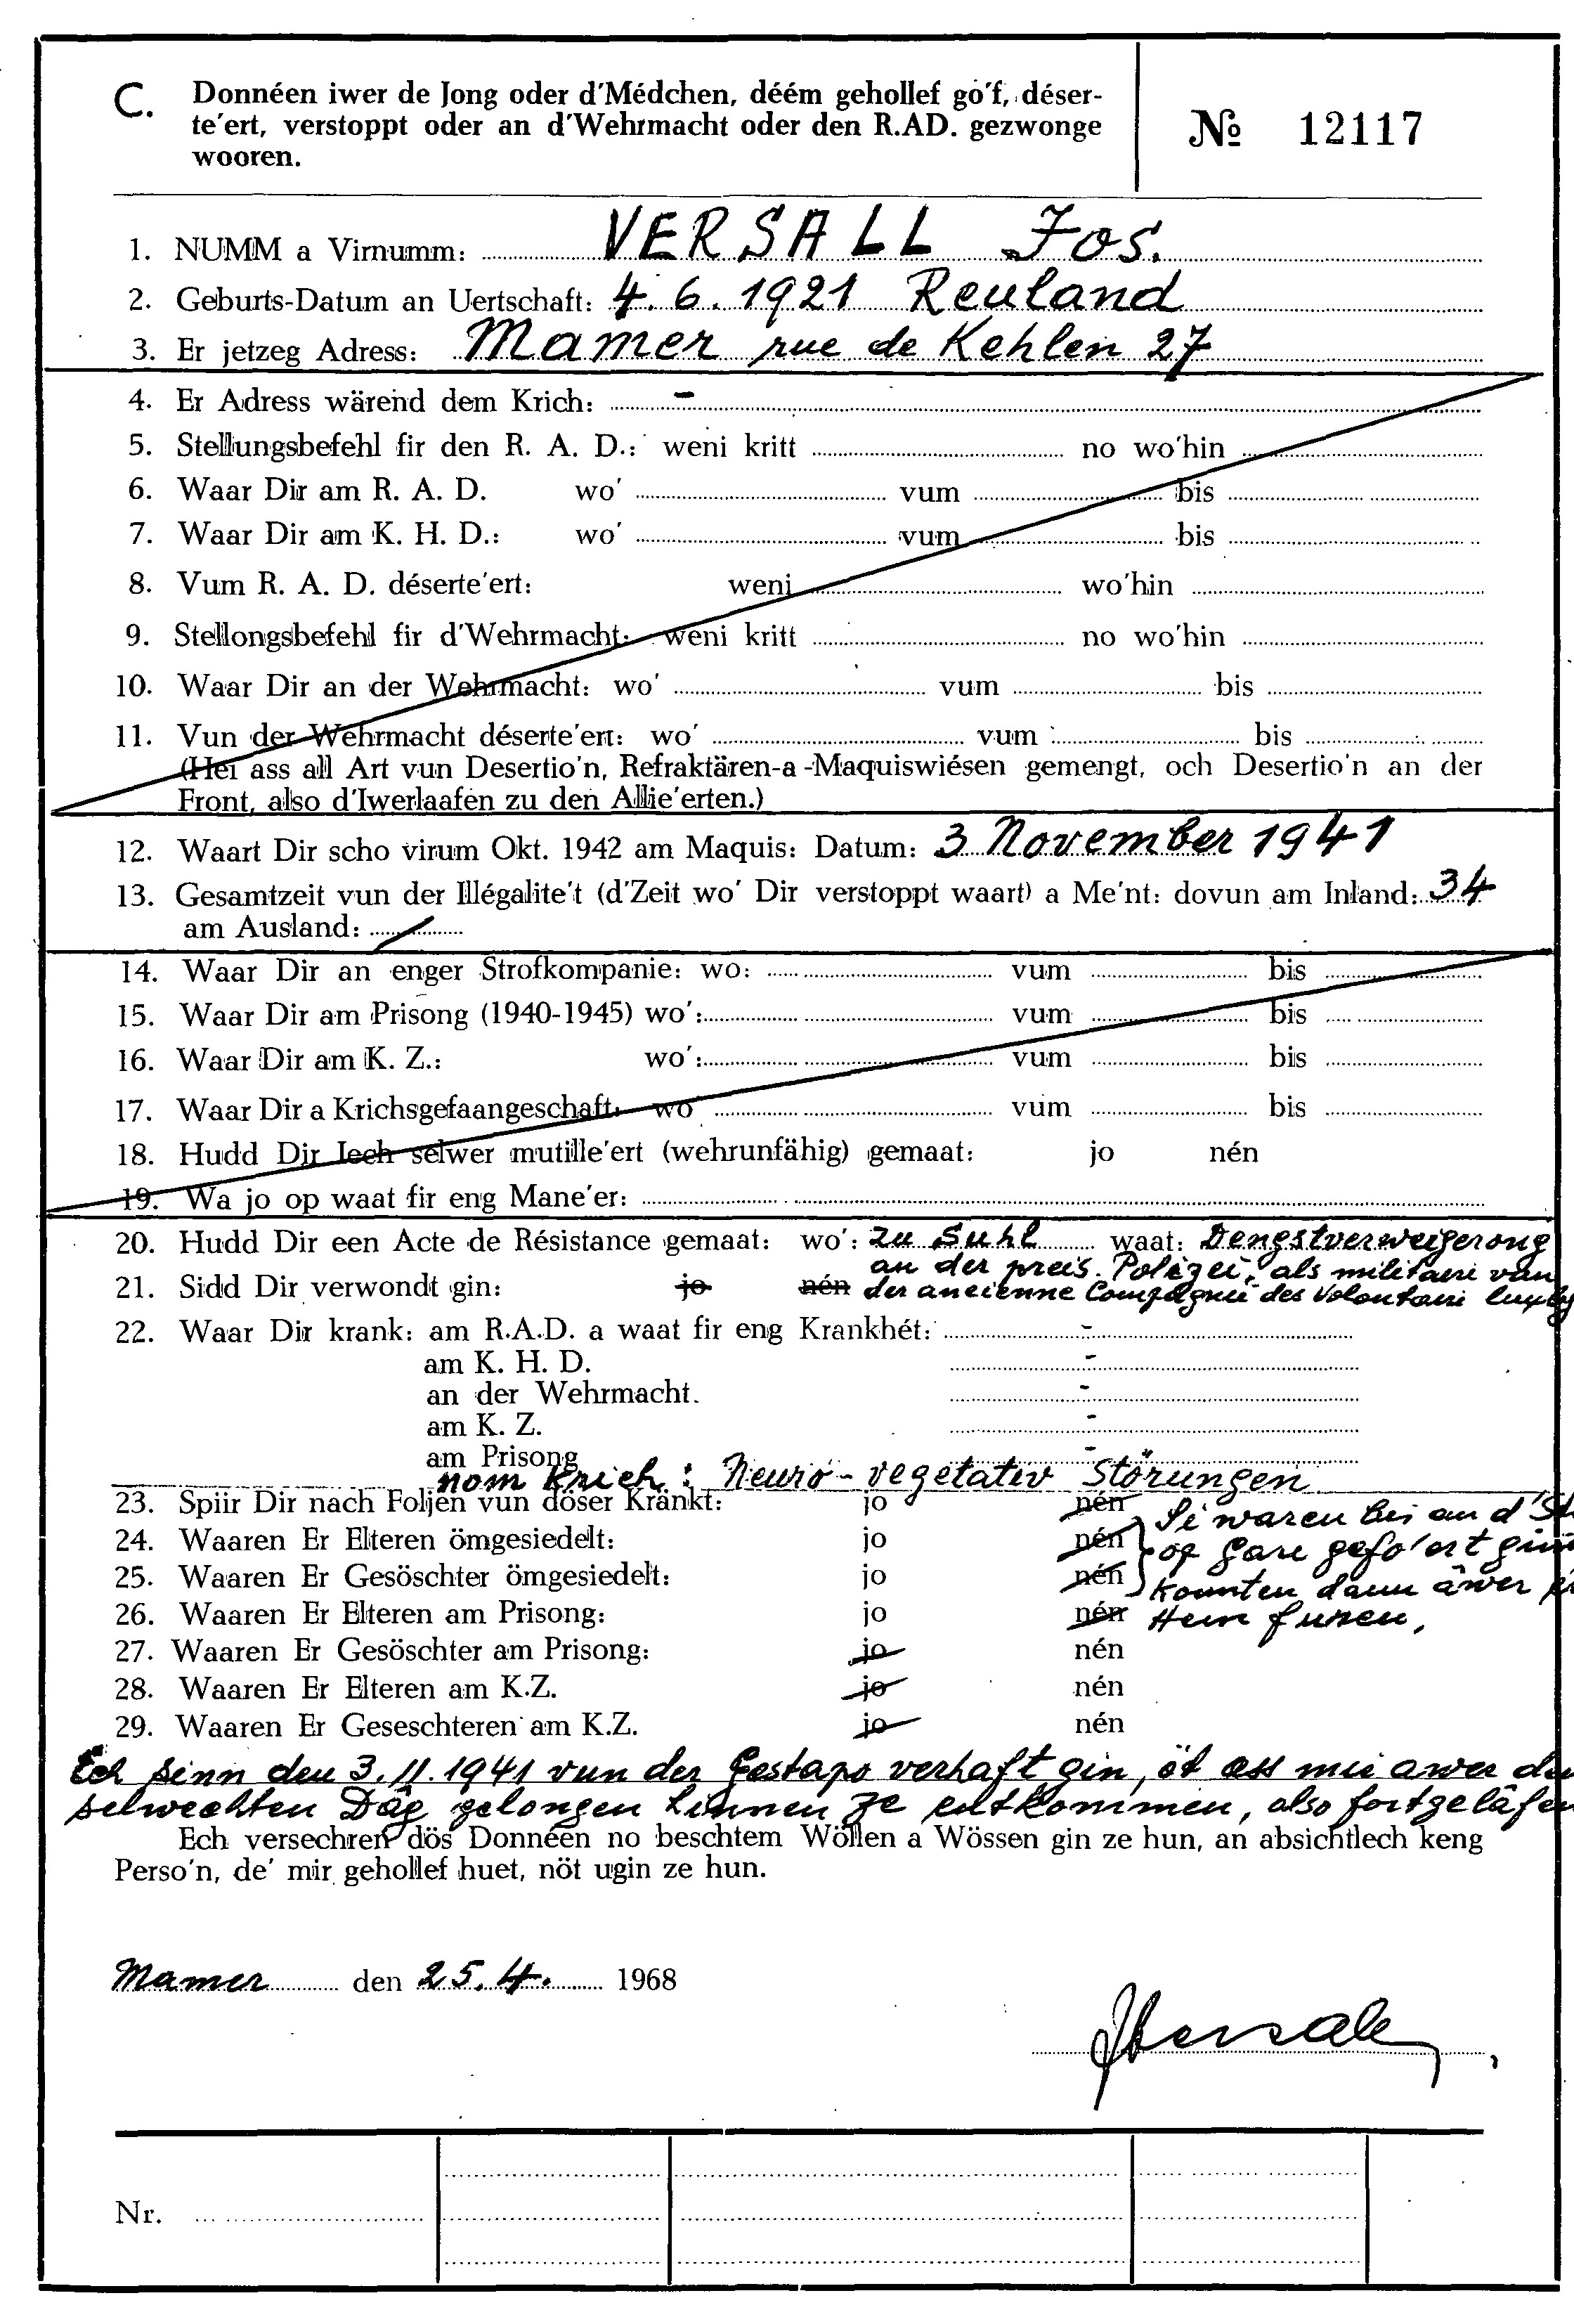 C. Donnéen iwer de Jong oder d'Médchen, déém gehollef go'f, déser-
te'ert, verstoppt oder an d'Wehrmacht oder den R.AD. gezwonge
wooren.
№ 12117
1. NUMM a Virnumm: VERSALL Jos.
2. Geburts-Datum an Uertschaft: 4.6.1921 Reuland
3. Er jetzeg Adress: Mamer rue de Kehlen 27
4. Er Adress wärend dem Krich: -
5. Stellungsbefehl fir den R. A. D.: weni kritt no wo'hin
6. Waar Dir am R. A. D. wo' vum bis
7. Waar Dir am K. H. D.: wo' vum bis
8. Vum R. A. D. déserte'ert: weni wo'hin
9. Stellongsbefehl fir d'Wehrmacht: weni kritt no wo'hin
10. Waar Dir an der Wehrmacht: wo' vum bis
11. Vun der Wehrmacht déserte'ert: wo' vum bis
(Hei ass all Art vun Desertio'n, Refraktären-a-Maquiswiésen gemengt, och Desertio'n an der
Front, also d'Iwerlaafen zu den Allie'erten.)
12. Waart Dir scho virum Okt. 1942 am Maquis: Datum: 3 November 1941
13. Gesamtzeit vun der Illégalite't (d'Zeit wo' Dir verstoppt waart) a Me'nt: dovun am Inland: 34
am Ausland: /
14. Waar Dir an enger Strofkompanie: wo: vum bis
15. Waar Dir am Prisong (1940-1945) wo': vum bis
16. Waar Dir am K. Z.: wo': vum bis
17. Waar Dir a Krichsgefaangeschaft: wo vum bis
18. Hudd Dir Iech selwer mutille'ert (wehrunfähig) gemaat: jo nén
19. Wa jo op waat fir eng Mane'er:
20. Hudd Dir een Acte de Résistance gemaat: wo': zu Suhl waat: Dengstverweigerong
an der preis. Polizei, als militaire van
21. Sidd Dir verwondt gin: jo nén der ancienne Compagnie des Volontaire luxbg
22. Waar Dir krank: am R.A.D. a waat fir eng Krankhét: -
am K. H. D. -
an der Wehrmacht. -
am K. Z. -
am Prisong -
nom Krich: Neuro-vegetativ Störungen
23. Spiir Dir nach Foljen vun döser Kränkt: jo nén
Si waren bis an d'
24. Waaren Er Elteren ömgesiedelt: jo nén op Gare gefo'ert
25. Waaren Er Gesöschter ömgesiedelt: jo nén konnten dann äwer
26. Waaren Er Elteren am Prisong: jo nén Hem fueren.
27. Waaren Er Gesöschter am Prisong: jo nén
28. Waaren Er Elteren am K.Z. jo nén
29. Waaren Er Geseschteren am K.Z. jo nén
Ech sinn den 3.11.1941 vun der Gestapo verhaft gin, öt ass mir awer
selwechten Däg gelongen hinnen ze entkommen, also fortgeläfen
Ech versechren dös Donnéen no beschtem Wöllen a Wössen gin ze hun, an absichtlech keng
Perso'n, de' mir gehollef huet, nöt ugin ze hun.
Mamer den 25.4. 1968
Nr.